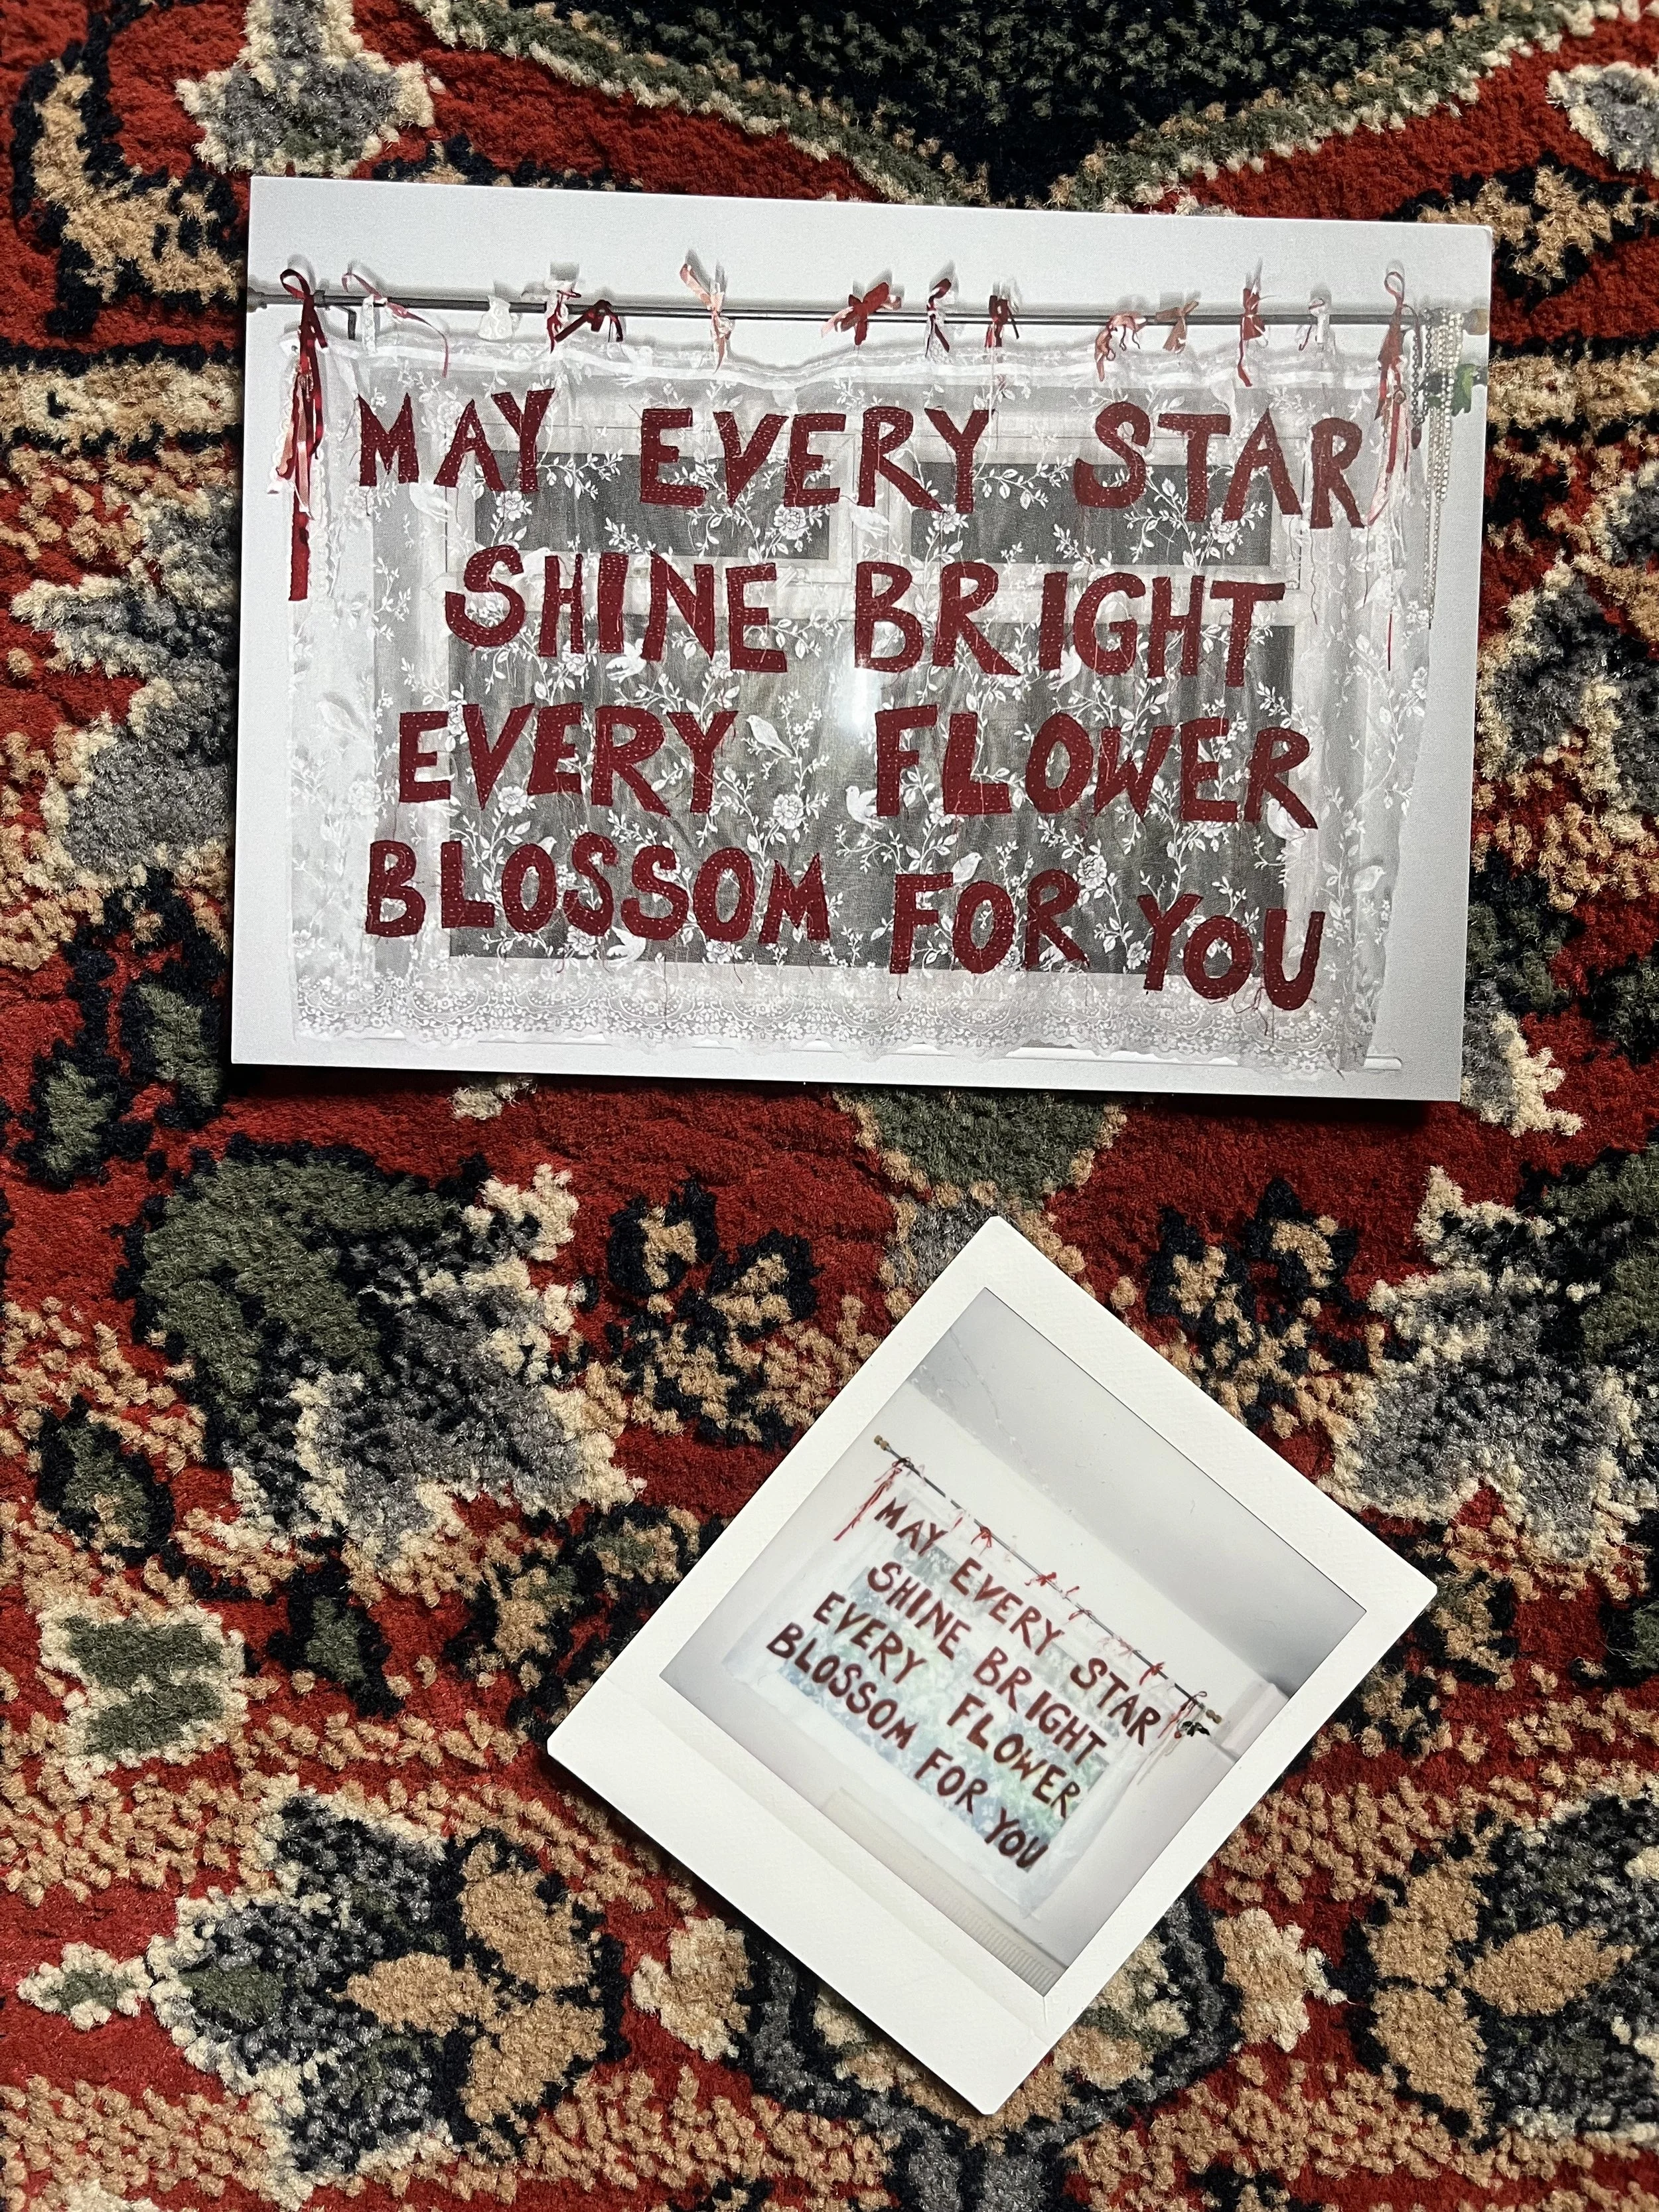 MAY EVERY STAR
SHINE BRIGHT
EVERY FLOWER
BLOSSOM FOR YOU
MAY EVERY STAR
SHINE BRIGHT
EVERY FLOWER
BLOSSOM FOR YOU